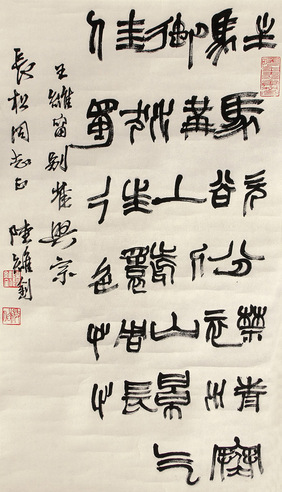 駐馬欲分襟清寒
御溝上前山景气
佳獨往還惆悵
王維留別崔興宗
長松同志正 陸維釗